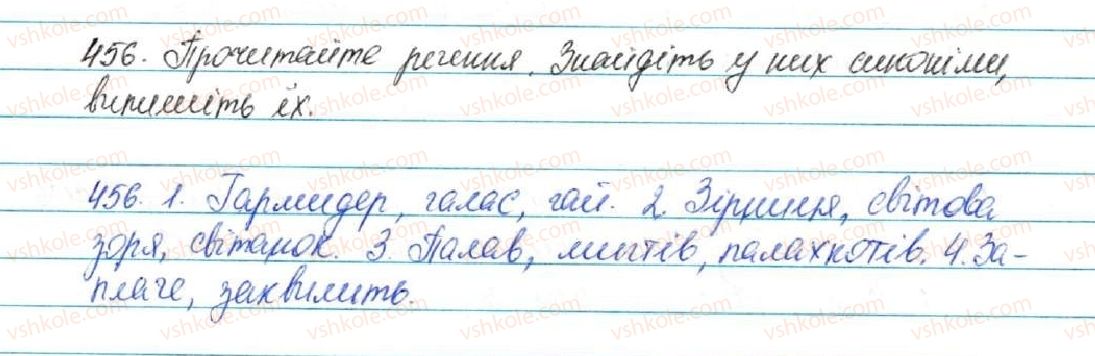 456. Прочитайте речення. Знайдіть у них синоніми,
випишіть їх.
456. 1. Гармидер, галас, гай. 2. Зірниця, світова
зоря, світанок. 3. Палав, миготів, палахкотів. 4. За-
плаче, заквилить.